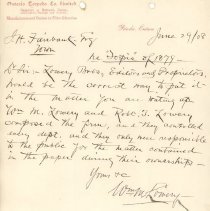 Ontario Torpedo Co. Limited
Petrolea, Ontario, June 29/08
J. H. Fairbank, Esq
Town
re Topic's of 1879 –
D. Sir: – Lowery Bros, Editors and Proprietors,
would be the correct way to put it
in the matter you are writing up
Wm M. Lowery and Robt. J. Lowery
composed the firm, and they controlled
every dept. and they only were responsible
to the public for the matter contained
in the paper during their ownership –
Yours &c
Wm M Lowery